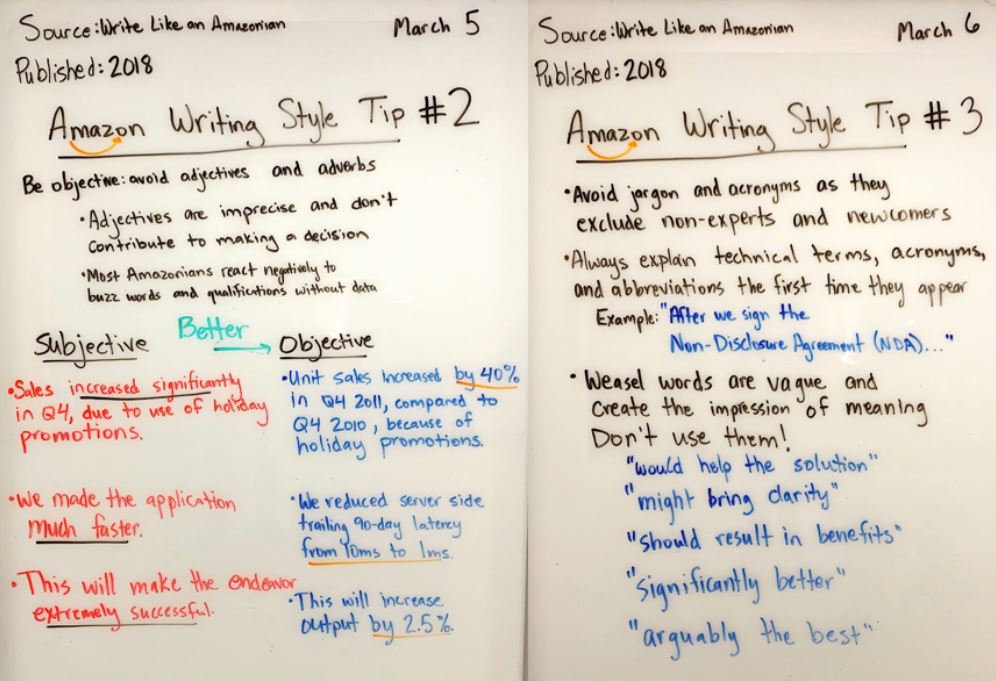 Source: Write Like an Amazonian March 5
Published: 2018
Amazon Writing Style Tip #2
Be objective: avoid adjectives and adverbs
•Adjectives are imprecise and don't
contribute to making a decision
•Most Amazonians react negatively to
buzz words and qualifications without data
Better
Subjective
•Sales increased significantly
in Q4, due to use of holiday
promotions.
•We made the application
much faster.
•This will make the endeavor
extremely successful.
Objective
•Unit sales increased by 40%
in Q4 2011, compared to
Q4 2010, because of
holiday promotions.
•We reduced server side
trailing 90-day latency
from 10ms to 1ms.
•This will increase
output by 2.5%.
Source: Write Like an Amazonian March 6
Published: 2018
Amazon Writing Style Tip #3
•Avoid jargon and acronyms as they
exclude non-experts and newcomers
•Always explain technical terms, acronyms,
and abbreviations the first time they appear
Example: "After we sign the
Non-Disclosure Agreement (NDA)..."
• Weasel words are vague and
create the impression of meaning
Don't use them!
"would help the solution"
"might bring clarity"
"should result in benefits"
"significantly better"
"arguably the best"